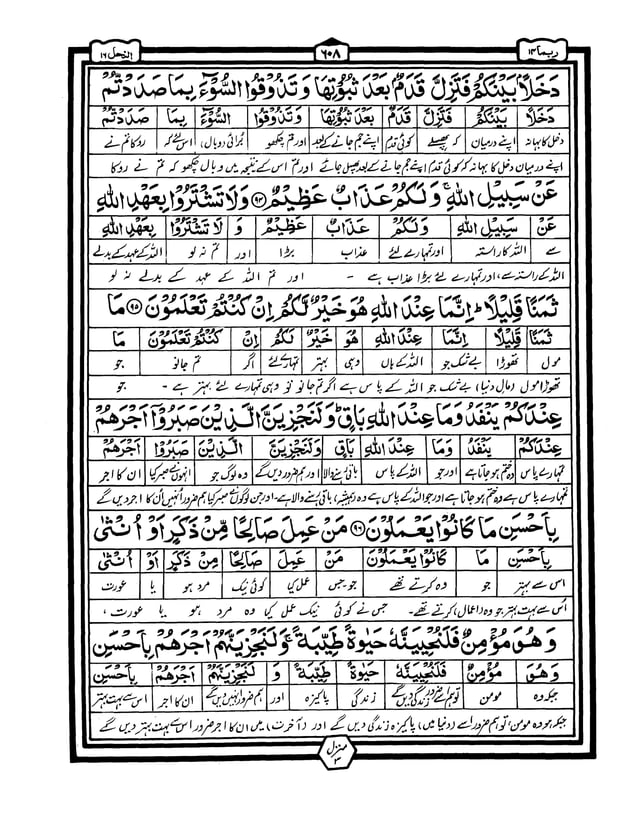 ربما ١٤
٦٠٨
النحل ١٦
دَخَلًاۢ بَيْنَكُمْ فَتَزِلَّ قَدَمٌۢ بَعْدَ ثُبُوْتِهَا وَتَذُوْقُوا السُّوْٓءَ بِمَا صَدَدْتُّمْ
دَخَلًاۢ بَيْنَكُمْ فَتَزِلَّ قَدَمٌۢ بَعْدَ ثُبُوْتِهَا وَتَذُوْقُوا السُّوْٓءَ بِمَا صَدَدْتُّمْ
دخل کا بہانہ اپنے درمیان کہ پھسلے کوئی قدم اپنے جم جانے کے بعد اور تم چکھو بُرائی (وبال) اس لئے کہ روکا تم نے
اپنے درمیان دخل کا بہانہ کہ کوئی قدم اپنے جم جانے کے بعد پھسل جائے اور تم اس کے نتیجہ میں وبال چکھو کہ تم نے روکا
عَنْ سَبِيْلِ اللّٰهِ ۚ وَلَكُمْ عَذَابٌ عَظِيْمٌ ﴿٩٤﴾ وَلَا تَشْتَرُوْا بِعَهْدِ اللّٰهِ
عَنْ سَبِيْلِ اللّٰهِ وَلَكُمْ عَذَابٌ عَظِيْمٌ وَ لَا تَشْتَرُوْا بِعَهْدِ اللّٰهِ
سے اللہ کا راستہ اور تمہارے لئے عذاب بڑا اور تم نہ لو اللہ کے عہد کے بدلے
اللہ کے راستہ سے، اور تمہارے لئے بڑا عذاب ہے ۔ اور تم اللہ کے عہد کے بدلے نہ لو
ثَمَنًا قَلِيْلًا ؕ اِنَّمَا عِنْدَ اللّٰهِ هُوَ خَيْرٌ لَّكُمْ اِنْ كُنْتُمْ تَعْلَمُوْنَ ﴿٩٥﴾ مَا
ثَمَنًا قَلِيْلًا اِنَّمَا عِنْدَ اللّٰهِ هُوَ خَيْرٌ لَّكُمْ اِنْ كُنْتُمْ تَعْلَمُوْنَ مَا
مول تھوڑا بے شک جو اللہ کے ہاں وہی بہتر تمہارے لئے اگر تم جانو جو
تھوڑا مول (مالِ دنیا) بے شک جو اللہ کے پاس ہے اگر تم جانو تو وہی تمہارے لئے بہتر ہے ۔ جو
عِنْدَكُمْ يَنْفَدُ وَمَا عِنْدَ اللّٰهِ بَاقٍ ؕ وَلَنَجْزِيَنَّ الَّذِيْنَ صَبَرُوْٓا اَجْرَهُمْ
عِنْدَكُمْ يَنْفَدُ وَمَا عِنْدَ اللّٰهِ بَاقٍ وَلَنَجْزِيَنَّ الَّذِيْنَ صَبَرُوْٓا اَجْرَهُمْ
تمہارے پاس وہ ختم ہو جاتا ہے اور جو اللہ کے پاس باقی رہنے والا اور ہم ضرور دیں گے وہ لوگ جو انہوں نے صبر کیا ان کا اجر
تمہارے پاس ہے وہ ختم ہو جاتا ہے اور جو اللہ کے پاس ہے وہ (ہمیشہ) باقی رہنے والا ہے۔ اور جن لوگوں نے صبر کیا ہم ضرور اُنہیں اُن کا اجر دیں گے
بِاَحْسَنِ مَا كَانُوْا يَعْمَلُوْنَ ﴿٩٦﴾ مَنْ عَمِلَ صَالِحًا مِّنْ ذَكَرٍ اَوْ اُنْثٰى
بِاَحْسَنِ مَا كَانُوْا يَعْمَلُوْنَ مَنْ عَمِلَ صَالِحًا مِّنْ ذَكَرٍ اَوْ اُنْثٰى
اس سے بہتر جو وہ کرتے تھے جو جس عمل کیا کوئی نیک مرد ہو یا عورت
اُس سے بہتر جو وہ (اعمال) کرتے تھے۔ جس نے کوئی نیک عمل کیا وہ مرد ہو یا عورت ،
وَهُوَ مُؤْمِنٌ فَلَنُحْيِيَنَّهٗ حَيٰوةً طَيِّبَةً ۚ وَلَنَجْزِيَنَّهُمْ اَجْرَهُمْ بِاَحْسَنِ
وَهُوَ مُؤْمِنٌ فَلَنُحْيِيَنَّهٗ حَيٰوةً طَيِّبَةً وَ لَنَجْزِيَنَّهُمْ اَجْرَهُمْ بِاَحْسَنِ
جبکہ وہ مومن تو ہم اسے ضرور زندگی دیں گے زندگی پاکیزہ اور ہم ضرور انہیں دیں گے ان کا اجر اس سے بہت بہتر
جبکہ ہو وہ مومن، تو ہم ضرور اسے (دنیا میں) پاکیزہ زندگی دیں گے اور (آخرت) میں ان کا اجر ضرور اس سے بہت بہتر دیں گے
منزل ٣